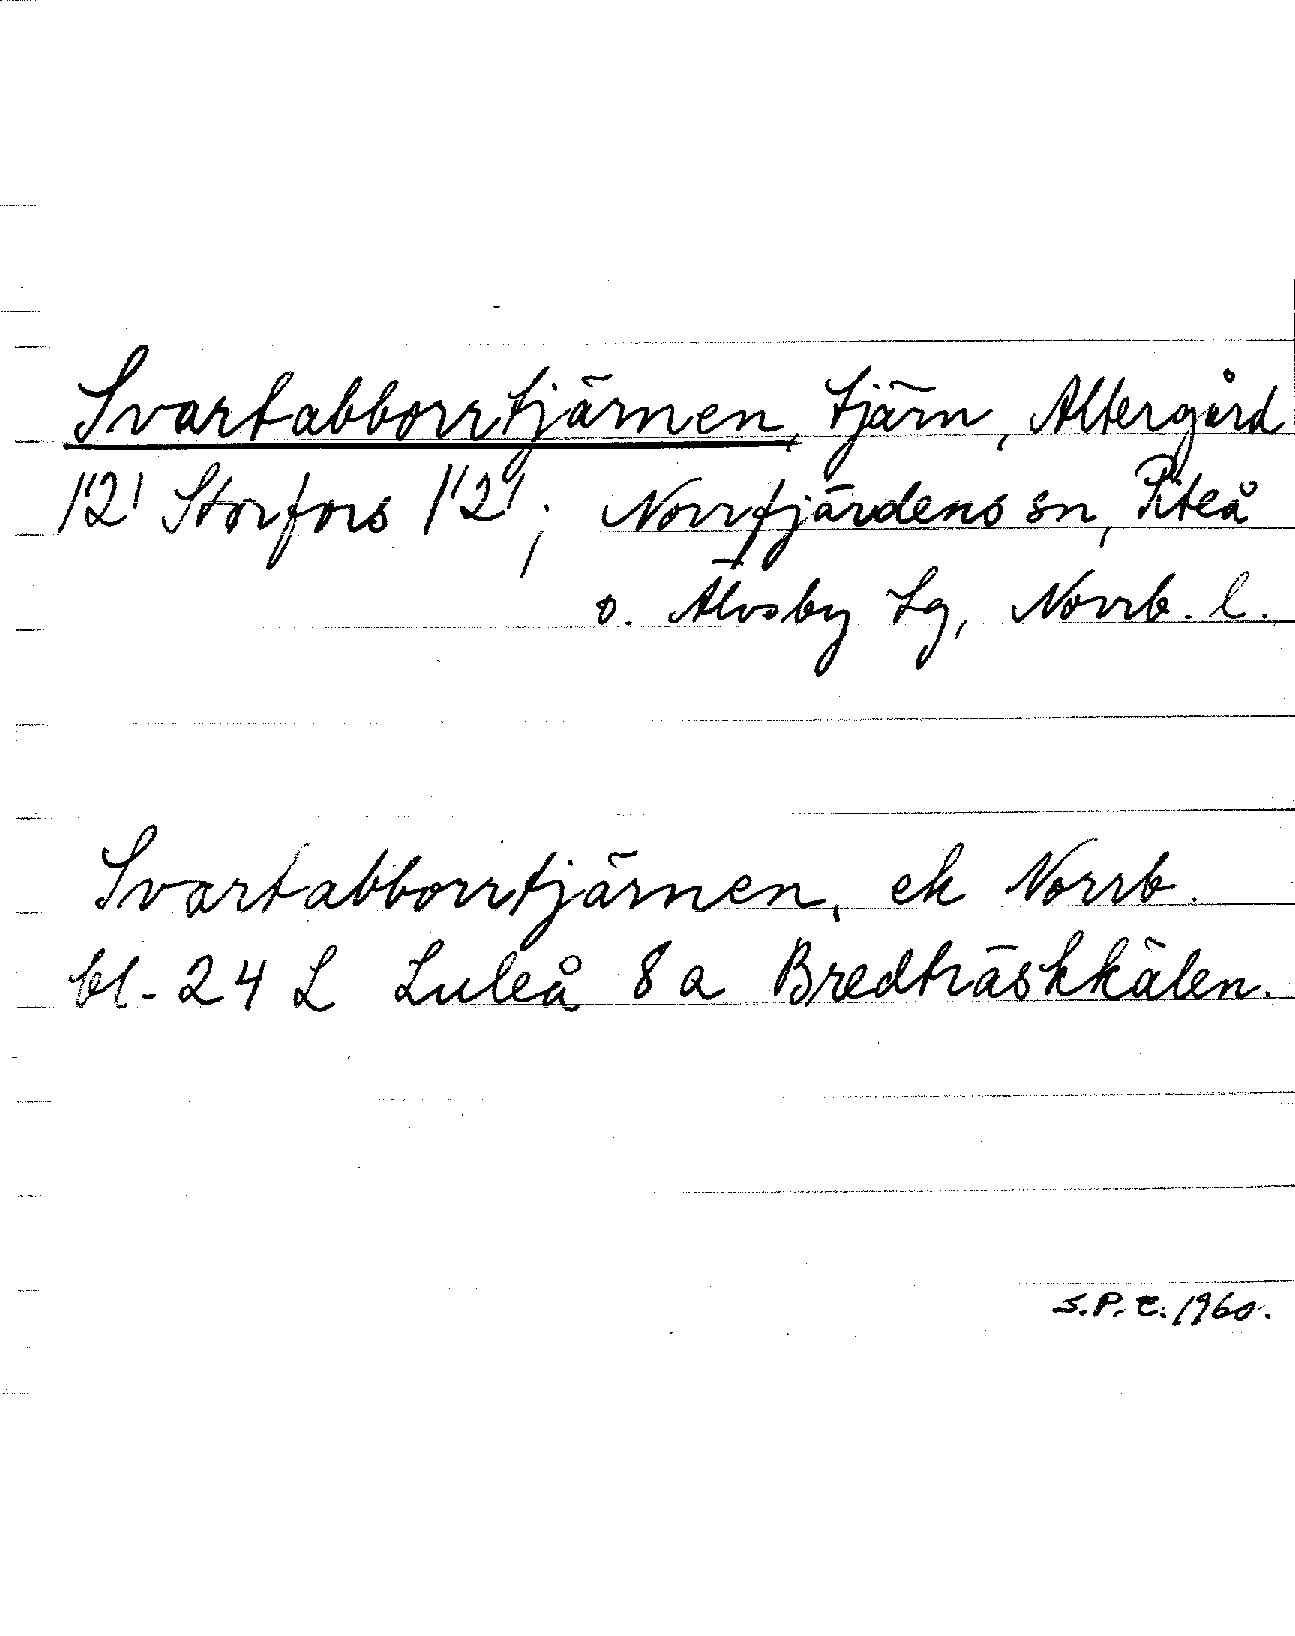 Svartabborrtjärnen, tjärn, Altergård
1'2' Storfors 1'2'; Norrfjärdens sn, Piteå
o. Älvsby tg, Norrb. l.
Svartabborrtjärnen, ek Norrb.
bl. 24 L Luleå 8 a Bredträskkälen.
S.P.E. 1960.